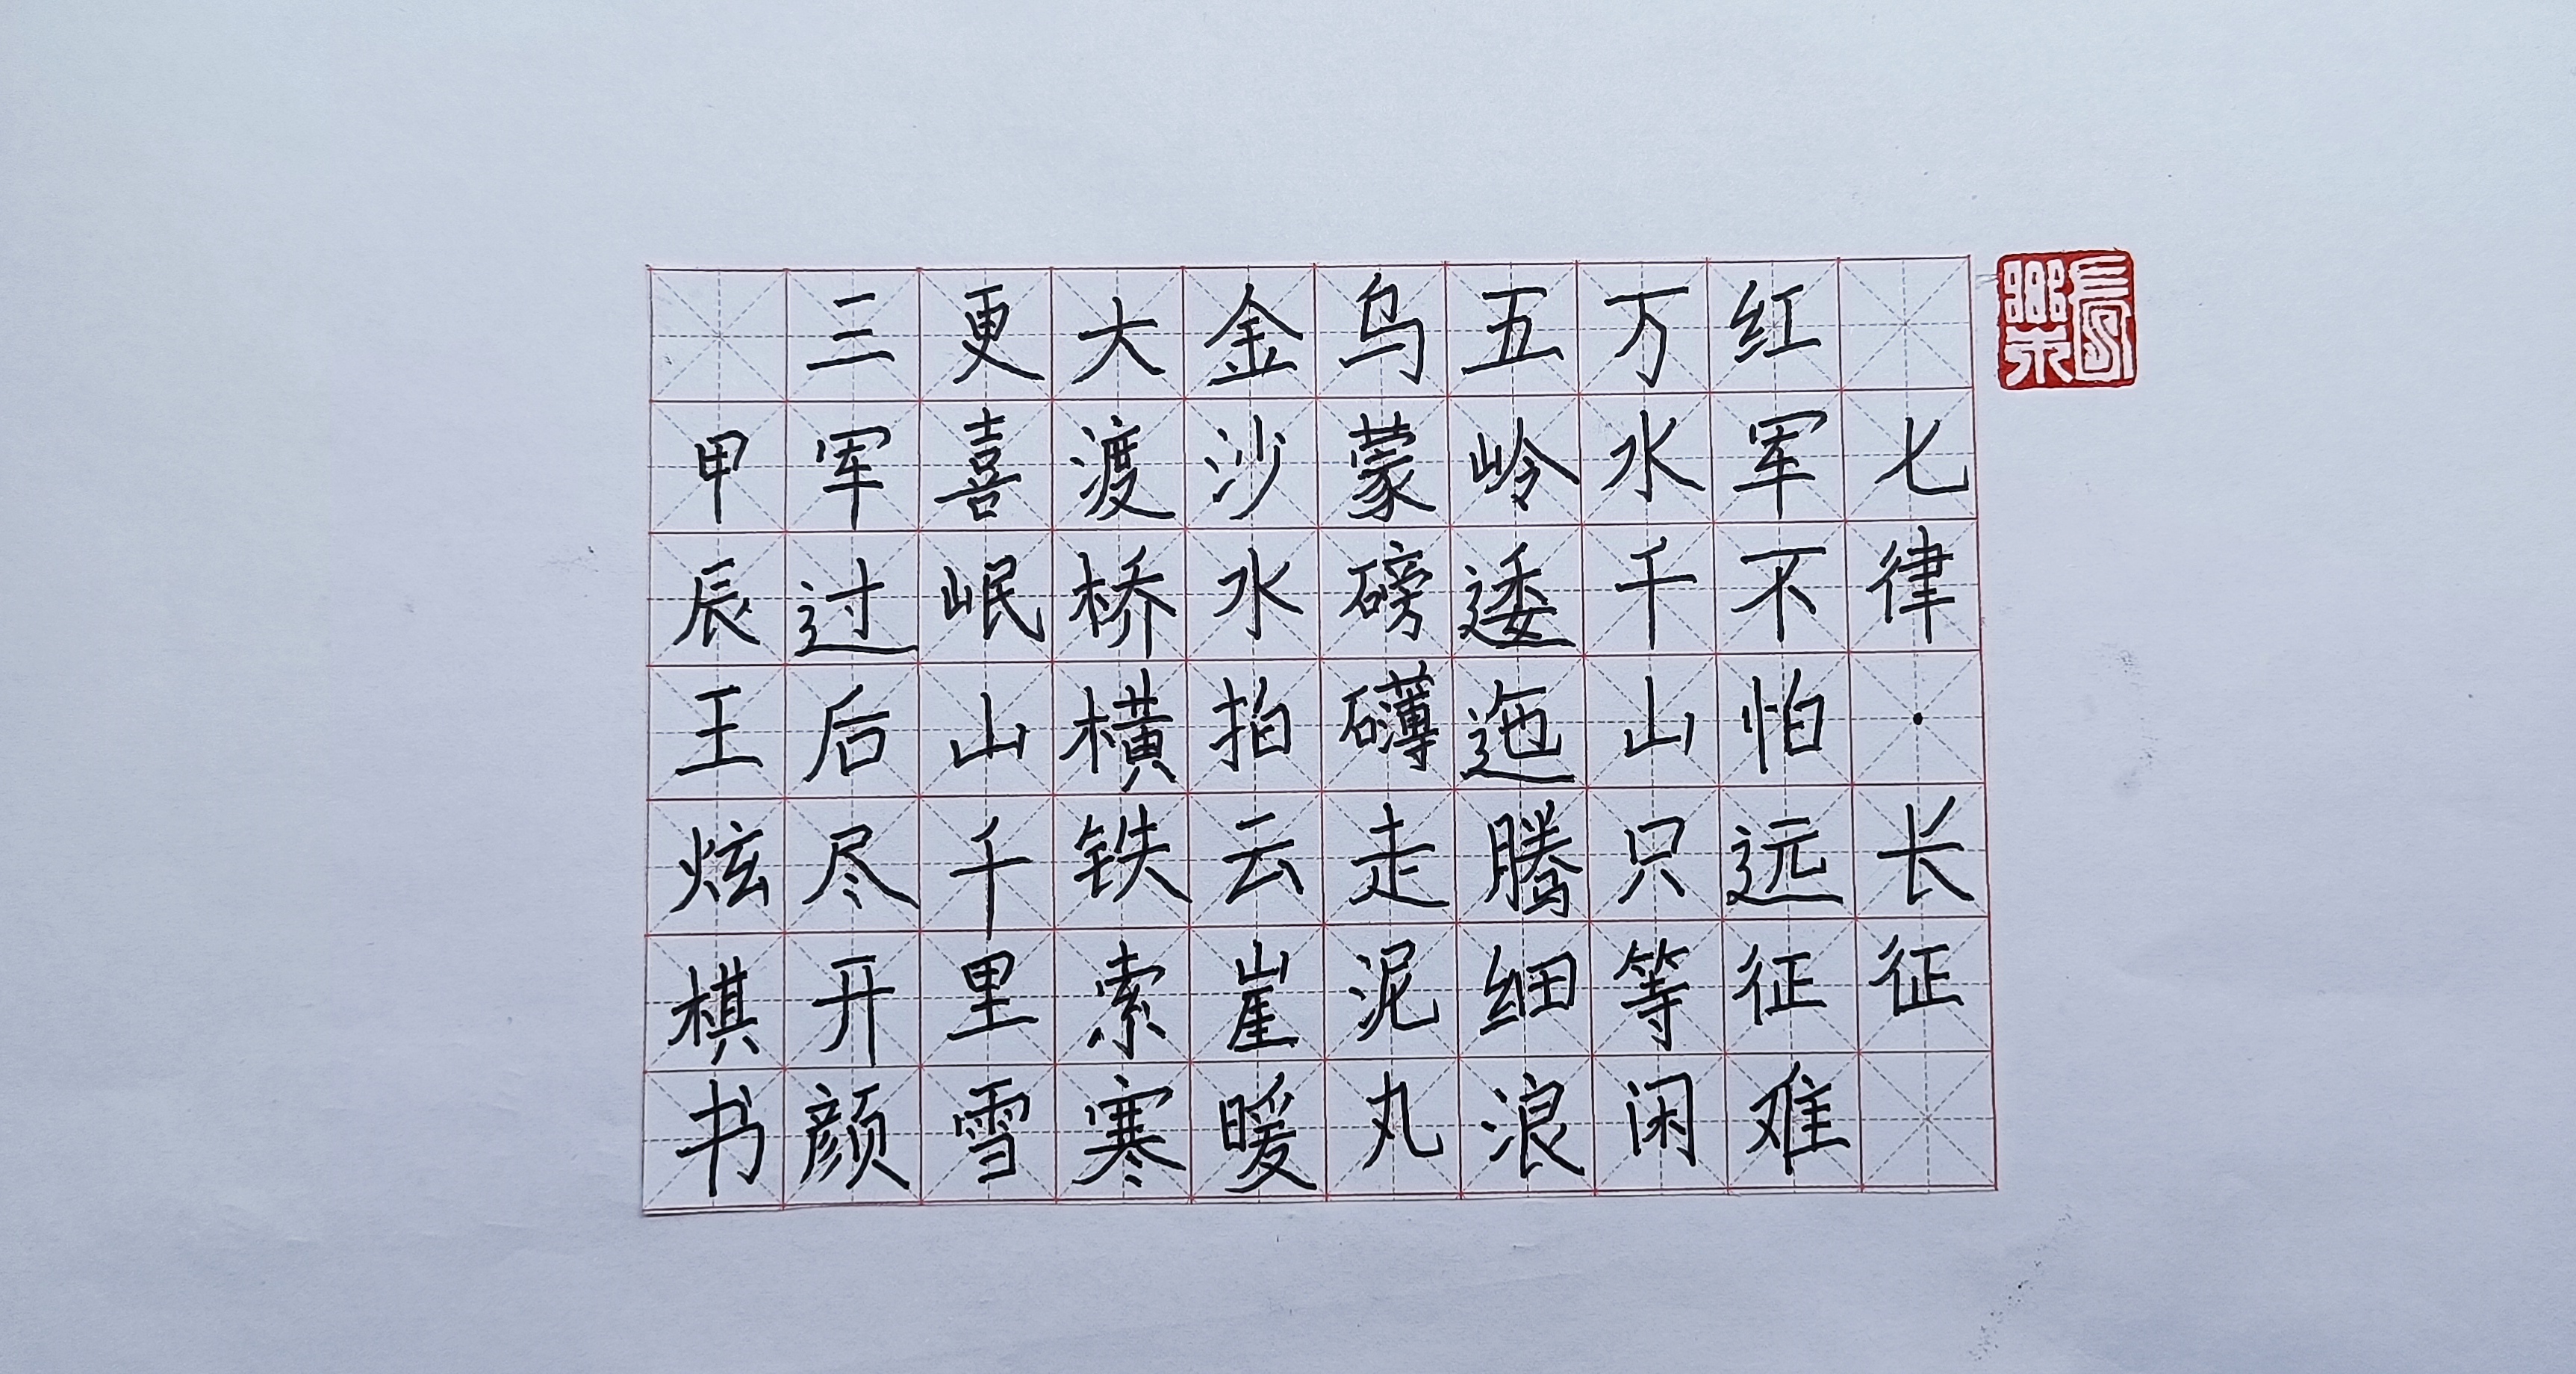 長樂
七律·长征
红军不怕远征难
万水千山只等闲
五岭逶迤腾细浪
乌蒙磅礴走泥丸
金沙水拍云崖暖
大渡桥横铁索寒
更喜岷山千里雪
三军过后尽开颜
甲辰王炫棋书